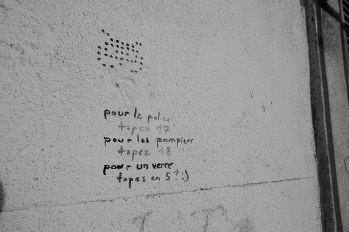 pour la police
tapez 17
pour les pompiers
tapez 18
pour un verre
tapes en 5 ! :)